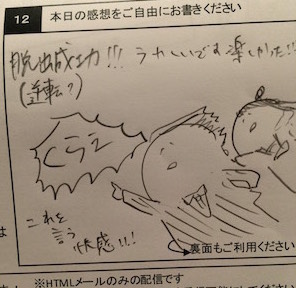 12 本日の感想をご自由にお書きください
脱出成功!!! うれしいです 楽しかった!!
(逆転?)
くらえ
これを
言う
快感!!!
裏面もご利用ください
は
※HTMLメールのみの配信です